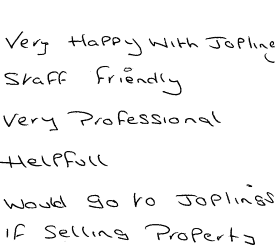 Very Happy With Jopling
Staff Friendly
Very Professional
Helpfull
Would go to Joplings
if Selling Property